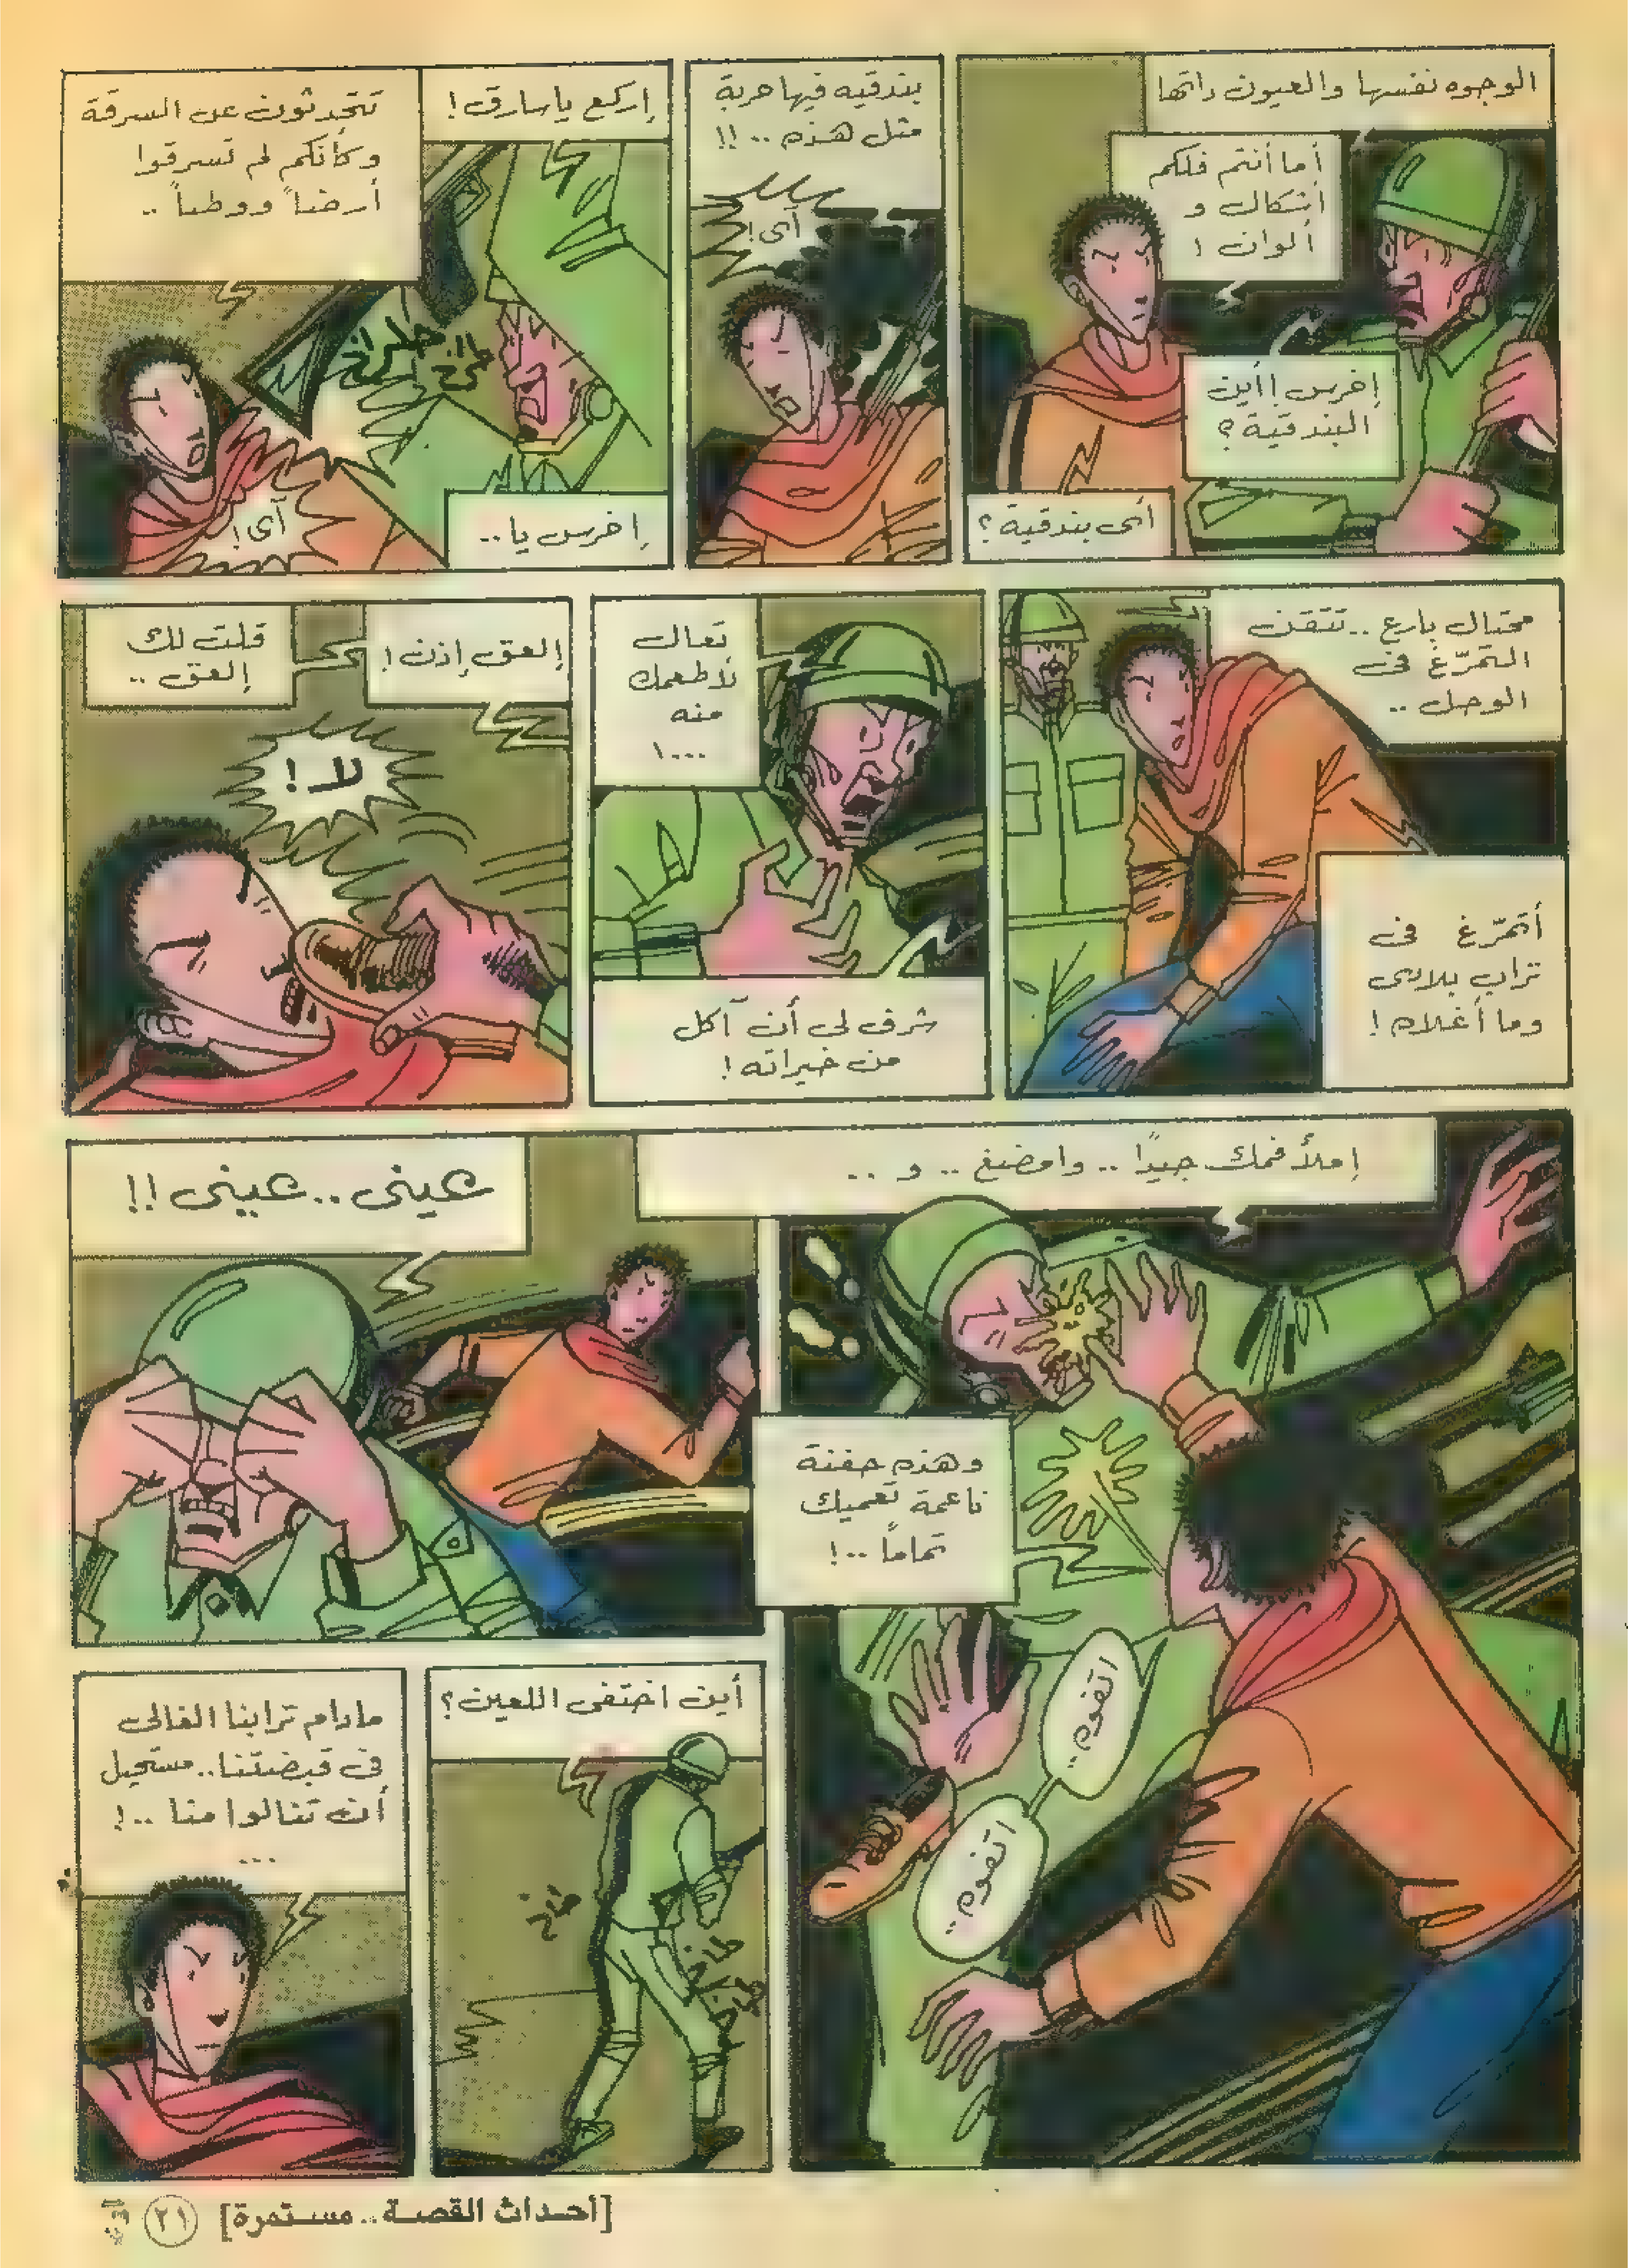 الوجوه نفسها والعيون ذاتها
أما أنتم فلكم
أشكال و
ألوان !
إخرس ! أين
البندقية ؟
أى بندقية ؟
بندقيه فيها حربة
مثل هذه .. !!
آى !
إركع ياسارق !
تتحدثون عن السرقة
وكأنكم لم تسرقوا
أرضنا ووطننا ..
إخرس يا ..
آى !
محتال بارع .. تتقن
التمرّغ فى
الوحل ..
أتمرّغ فى
تراب بلادى
وما أغلاه !
تعال
لأطعمك
منه
....!
شرف لى أن آكل
من خيراته !
إلعق إذن !
قلت لك
إلعق ..
لا !
إملأ فمك جيدًا .. وامضغ .. و ..
وهذه حفنة
ناعمة تعميك
تمامًا .. !
اتفوه ..
اتفوه ..
عينى .. عينى !!
أين اختفى اللعين ؟
مادام ترابنا الغالى
فى قبضتنا .. مستحيل
أن تنالوا منا .. !
...
[أحداث القصة .. مستمرة] ٢١